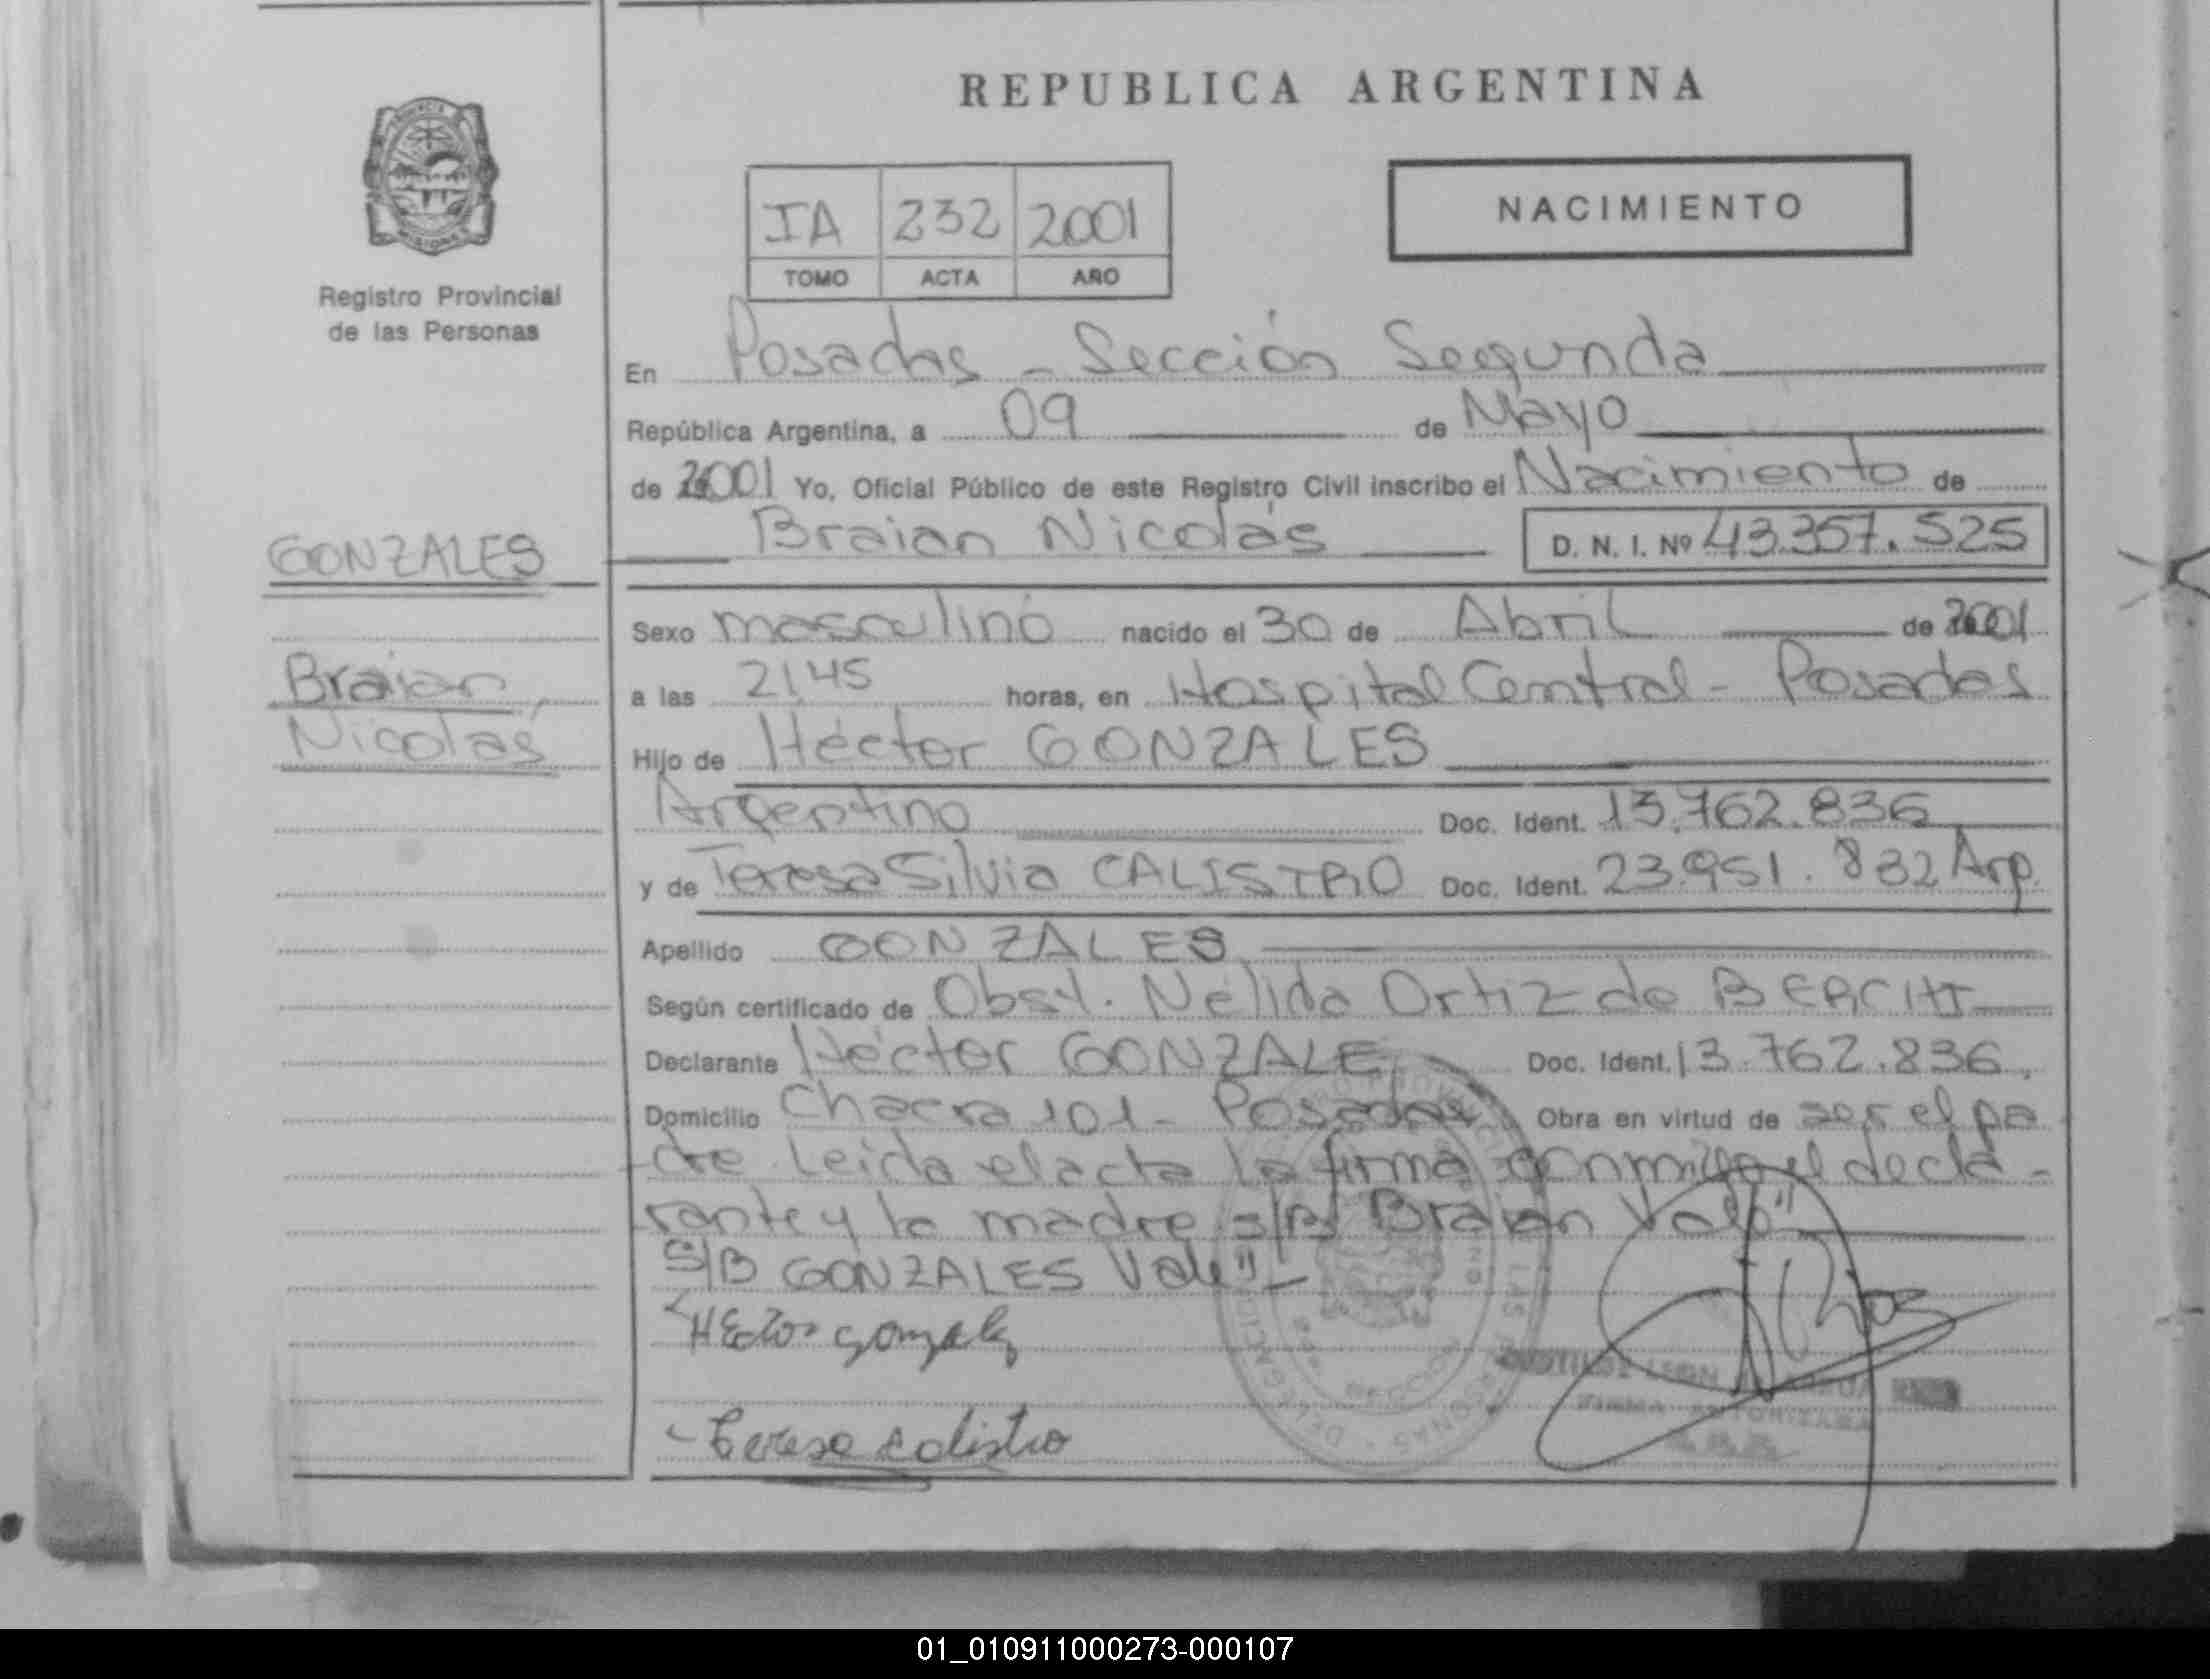 REPUBLICA ARGENTINA
PROVINCIA
MISIONES
Registro Provincial
de las Personas
IA 232 2001
TOMO ACTA AÑO
NACIMIENTO
En Posadas - Sección Segunda
República Argentina, a 09 de Mayo
de 2001 Yo, Oficial Público de este Registro Civil inscribo el Nacimiento de
Braian Nicolás D. N. I. Nº 43.357.525
GONZALES
Braian
Nicolás
Sexo masculino nacido el 30 de Abril de 2001
a las 21,45 horas, en Hospital Central - Posadas
Hijo de Héctor GONZALES
Argentino Doc. Ident. 13.762.836
y de Teresa Silvia CALISTRO Doc. Ident. 23.951.832 Arg.
Apellido GONZALES
Según certificado de Obst. Nélida Ortiz de
Declarante Héctor GONZALE Doc. Ident. 13.762.836.
Domicilio Chacra 101 - Posadas Obra en virtud de ser el pa
dre. Leida el acta la firma conmigo el decla-
rante y la madre s/B/ Braian Vale"
S/B GONZALES Vale"-
Héctor Gonzalez
Teresa Calistro
FIRMA AUTORIZADA
01_010911000273-000107